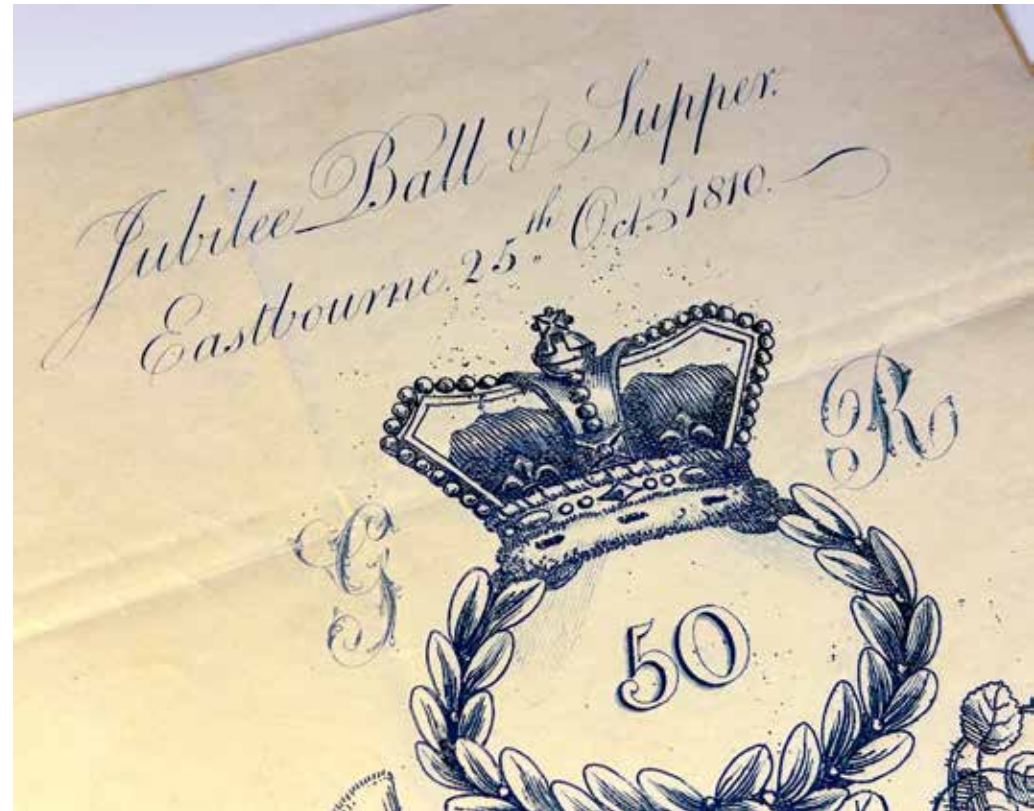 Jubilee Ball & Supper.
Eastbourne. 25th Octr 1810.
G R
50